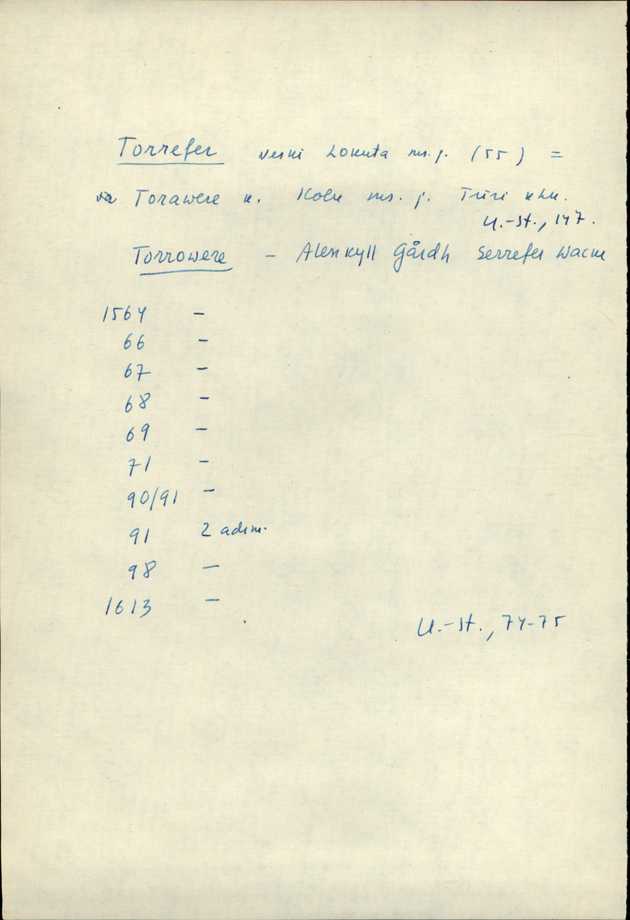 Torrefer veski Lokuta ms. j. (55) =
Torawere k. Kolu ms. j. Türi khk.
U.-St., 147.
Torrowere - Alenkyll Gårdh Serrefer Wacke
1564 -
66 -
67 -
68 -
69 -
71 -
90/91 -
91 2 adrm.
98 -
1613 -
U.-St., 74-75